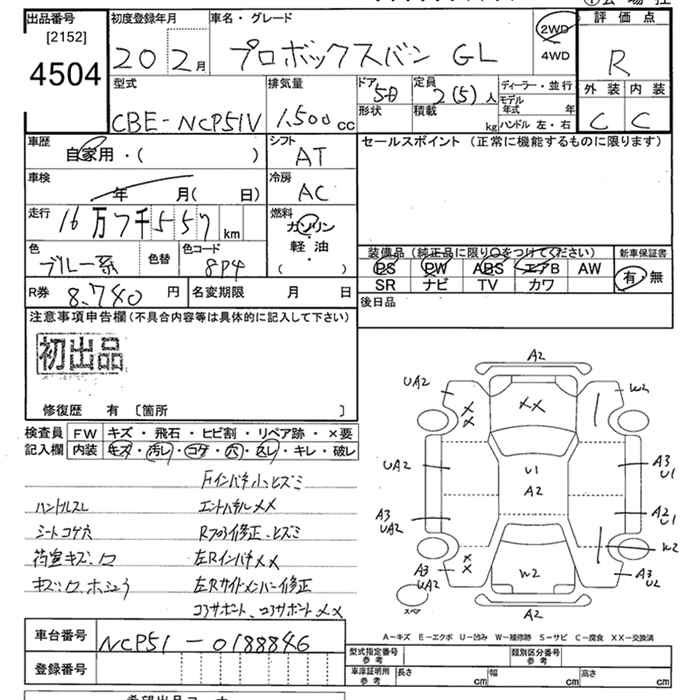 出品番号 初度登録年月 車名・グレード 評価点
[2152]
4504 20 2月 プロボックスバン GL 2WD 4WD R
型式 排気量 ドア 定員 ディーラー・並行 外装 内装
CBE-NCP51V 1,500cc 5D 2(5)人 モデル年式 年
形状 積載 kg ハンドル 左・右 C C
車歴 シフト セールスポイント(正常に機能するものに限ります)
自家用・( ) AT
車検 冷房
年 月( 日) AC
走行 燃料
16万7千557km ガソリン
軽・油
( )
色 色替 色コード 装備品(純正品に限り○をつけてください) 新車保証書
ブルー系 8P4 PS PW ABS エアB AW 有・無
SR ナビ TV カワ
R券 8,740円 名変期限 月 日 後日品
注意事項申告欄(不具合内容等は具体的に記入して下さい)
初出品
修復歴 有 〔箇所 〕
検査員 FW キズ・飛石・ヒビ割・リペア跡・×要
記入欄 内装 キズ・汚レ・コゲ・穴・スレ・キレ・破レ
Fインパネ小ヒズミ
ハンドルスレ エンドパネルXX
シートコゲ穴 Rフロア修正、ヒズミ
荷室キズ、ワレ 左RインパネXX
左Rサイドメンバー修正
コアサポートXX
A2
UA2 XX XX W2
UA2 U1 A2 A3 U1
A3 UA2 A2 U1
A3 UA2 XX W2 W2 A3 U2
スペア A2
A-キズ E-エクボ U-凹み W-補修跡 S-サビ C-腐食 XX-交換済
車台番号 NCP51-0188846
型式指定番号 参考 類別区分番号 参考
登録番号 車庫証明用 参考 長さ cm 幅 cm 高さ cm